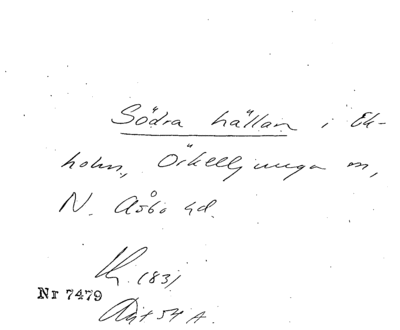 Södra hällan i Ek-
holm, Örkelljunga sn,
N. Åsbo hd.
1831
Nr 7479
54 A.